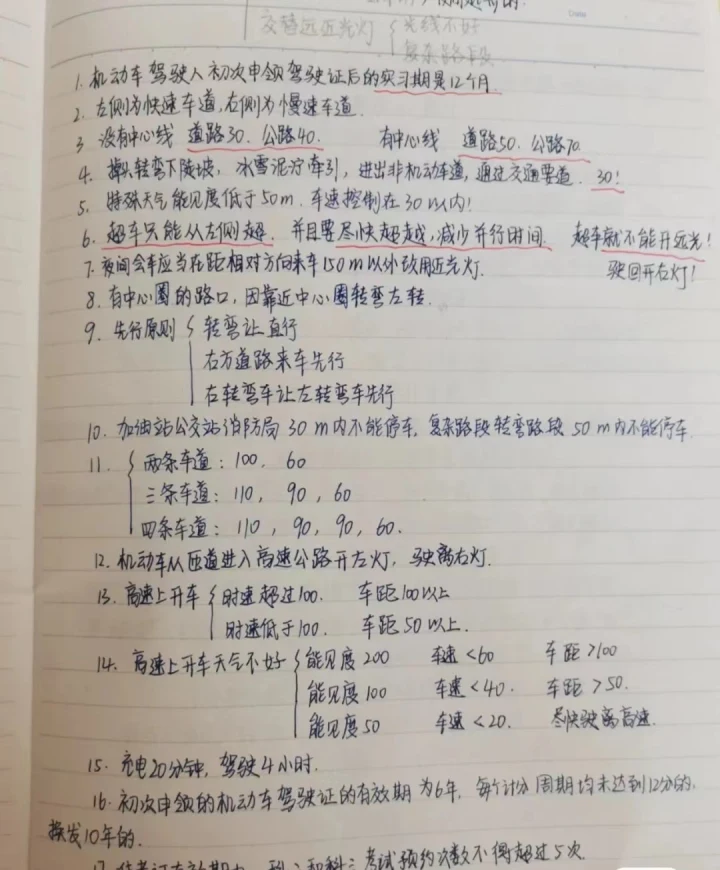 交替远近光灯 { 光线不好
复杂路段
1. 机动车驾驶人初次申领驾驶证后的实习期是12个月.
2. 左侧为快速车道,右侧为慢速车道.
3 没有中心线 道路30. 公路40. 有中心线 道路50. 公路70.
4. 掉头转弯下陡坡, 冰雪泥泞牵引, 进出非机动车道, 通过交通要道. 30!
5. 特殊天气能见度低于50m. 车速控制在30以内!
6. 超车只能从左侧超. 并且要尽快超越,减少并行时间. 超车就不能开远光!
7. 夜间会车应当在距相对方向来车150m以外改用近光灯. 驶回开右灯!
8. 有中心圈的路口, 因靠近中心圈转弯左转.
9. 先行原则 { 转弯让直行
右方道路来车先行
右转弯车让左转弯车先行
10. 加油站公交站消防局 30 m内不能停车, 复杂路段转弯路段 50 m内不能停车.
11. { 两条车道: 100, 60
三条车道: 110, 90, 60
四条车道: 110, 90, 90, 60.
12. 机动车从匝道进入高速公路开左灯, 驶离右灯.
13. 高速上开车 { 时速超过100. 车距100以上
时速低于100. 车距50以上.
14. 高速上开车天气不好 { 能见度200 车速<60 车距>100
能见度100 车速<40. 车距>50.
能见度50 车速<20. 尽快驶离高速.
15. 充电20分钟, 驾驶4小时.
16. 初次申领的机动车驾驶证的有效期为6年. 每个计分周期均未达到12分的.
换发10年的.
17 准考证有效期内 科二和科三考试预约次数不得超过5次.